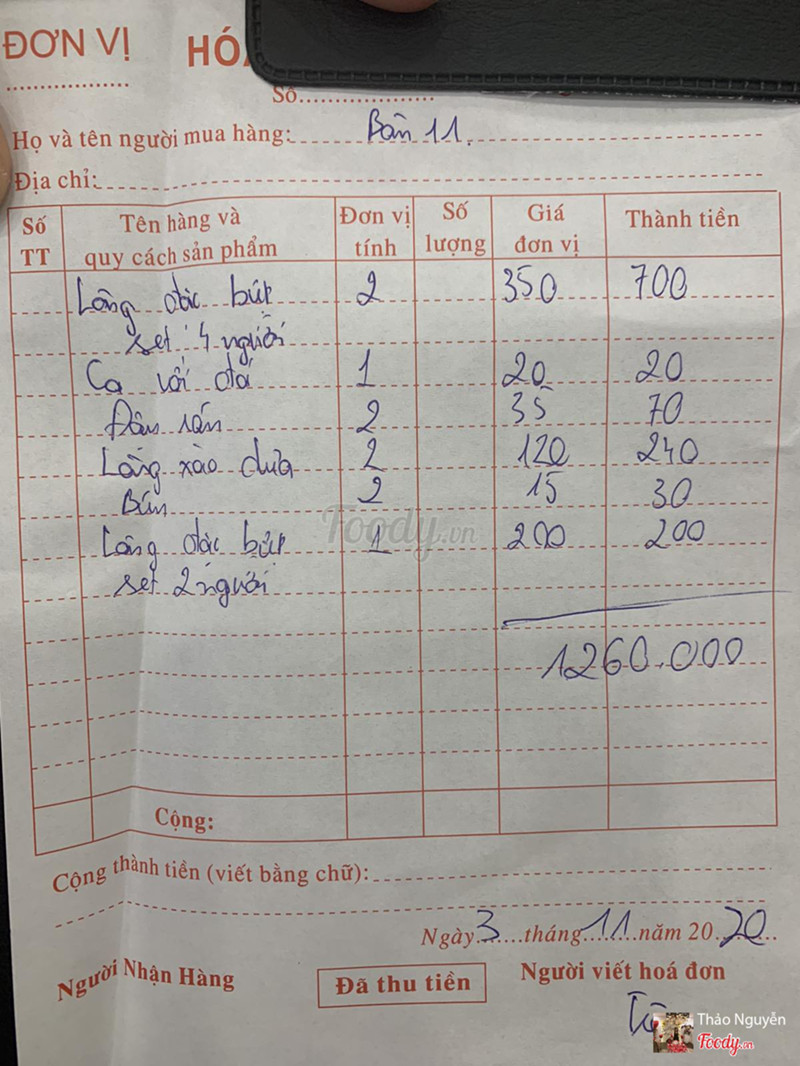 ĐƠN VỊ
HÓA
Số
Họ và tên người mua hàng: Bàn 11.
Địa chỉ:
Số TT Tên hàng và quy cách sản phẩm Đơn vị tính Số lượng Giá đơn vị Thành tiền
Lòng đặc bút 2 350 700
set 4 người
Ca với đá 1 20 20
Đậu rán 2 35 70
Lòng xào dưa 2 120 240
Bún 2 15 30
Lòng đặc bút 1 200 200
set 2 người
1260.000
Cộng:
Cộng thành tiền (viết bằng chữ):
Ngày 3 tháng 11 năm 2020
Người Nhận Hàng Đã thu tiền Người viết hoá đơn
Foody.vn
Thảo Nguyễn
Foody.vn